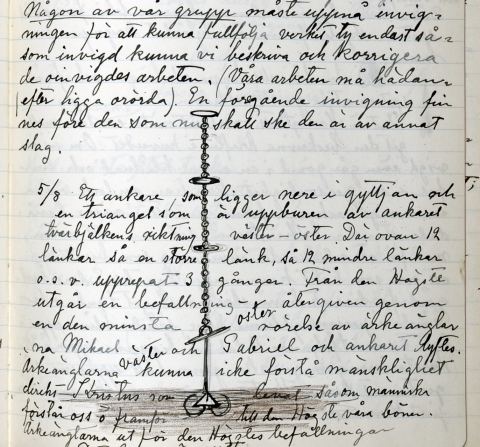 Någon av vår grupp måste uppnå invig-
ningen för att kunna fullfölja verket ty endast så-
som invigd kunna vi beskriva och korrigera
de oinvigdes arbeten. (Våra arbeten må hädan-
efter ligga orörda). En föregående invigning fin-
nes före den som nu skall ske den är av annat
slag.
5/8 Ett ankare, som ligger nere i gyttjan och
en triangel som är uppburen av ankaret
tvärbjälkens riktning väster - öster. Där ovan 12
länkar så en större länk, så 12 mindre länkar
o.s.v. upprepat 3 gånger. Från den Högste
utgår en befallning återgiven genom
en den minsta öster rörelse av ärkeänglar
na Mikael väster och Gabriel och ankaret lyftes.
Ärkeänglarna kunna icke förstå mänsklighet
direkt Kristus som levat såsom människa
förstår oss o framför till den Högste våra böner.
Ärkeänglarna utför den Högstes befallningar